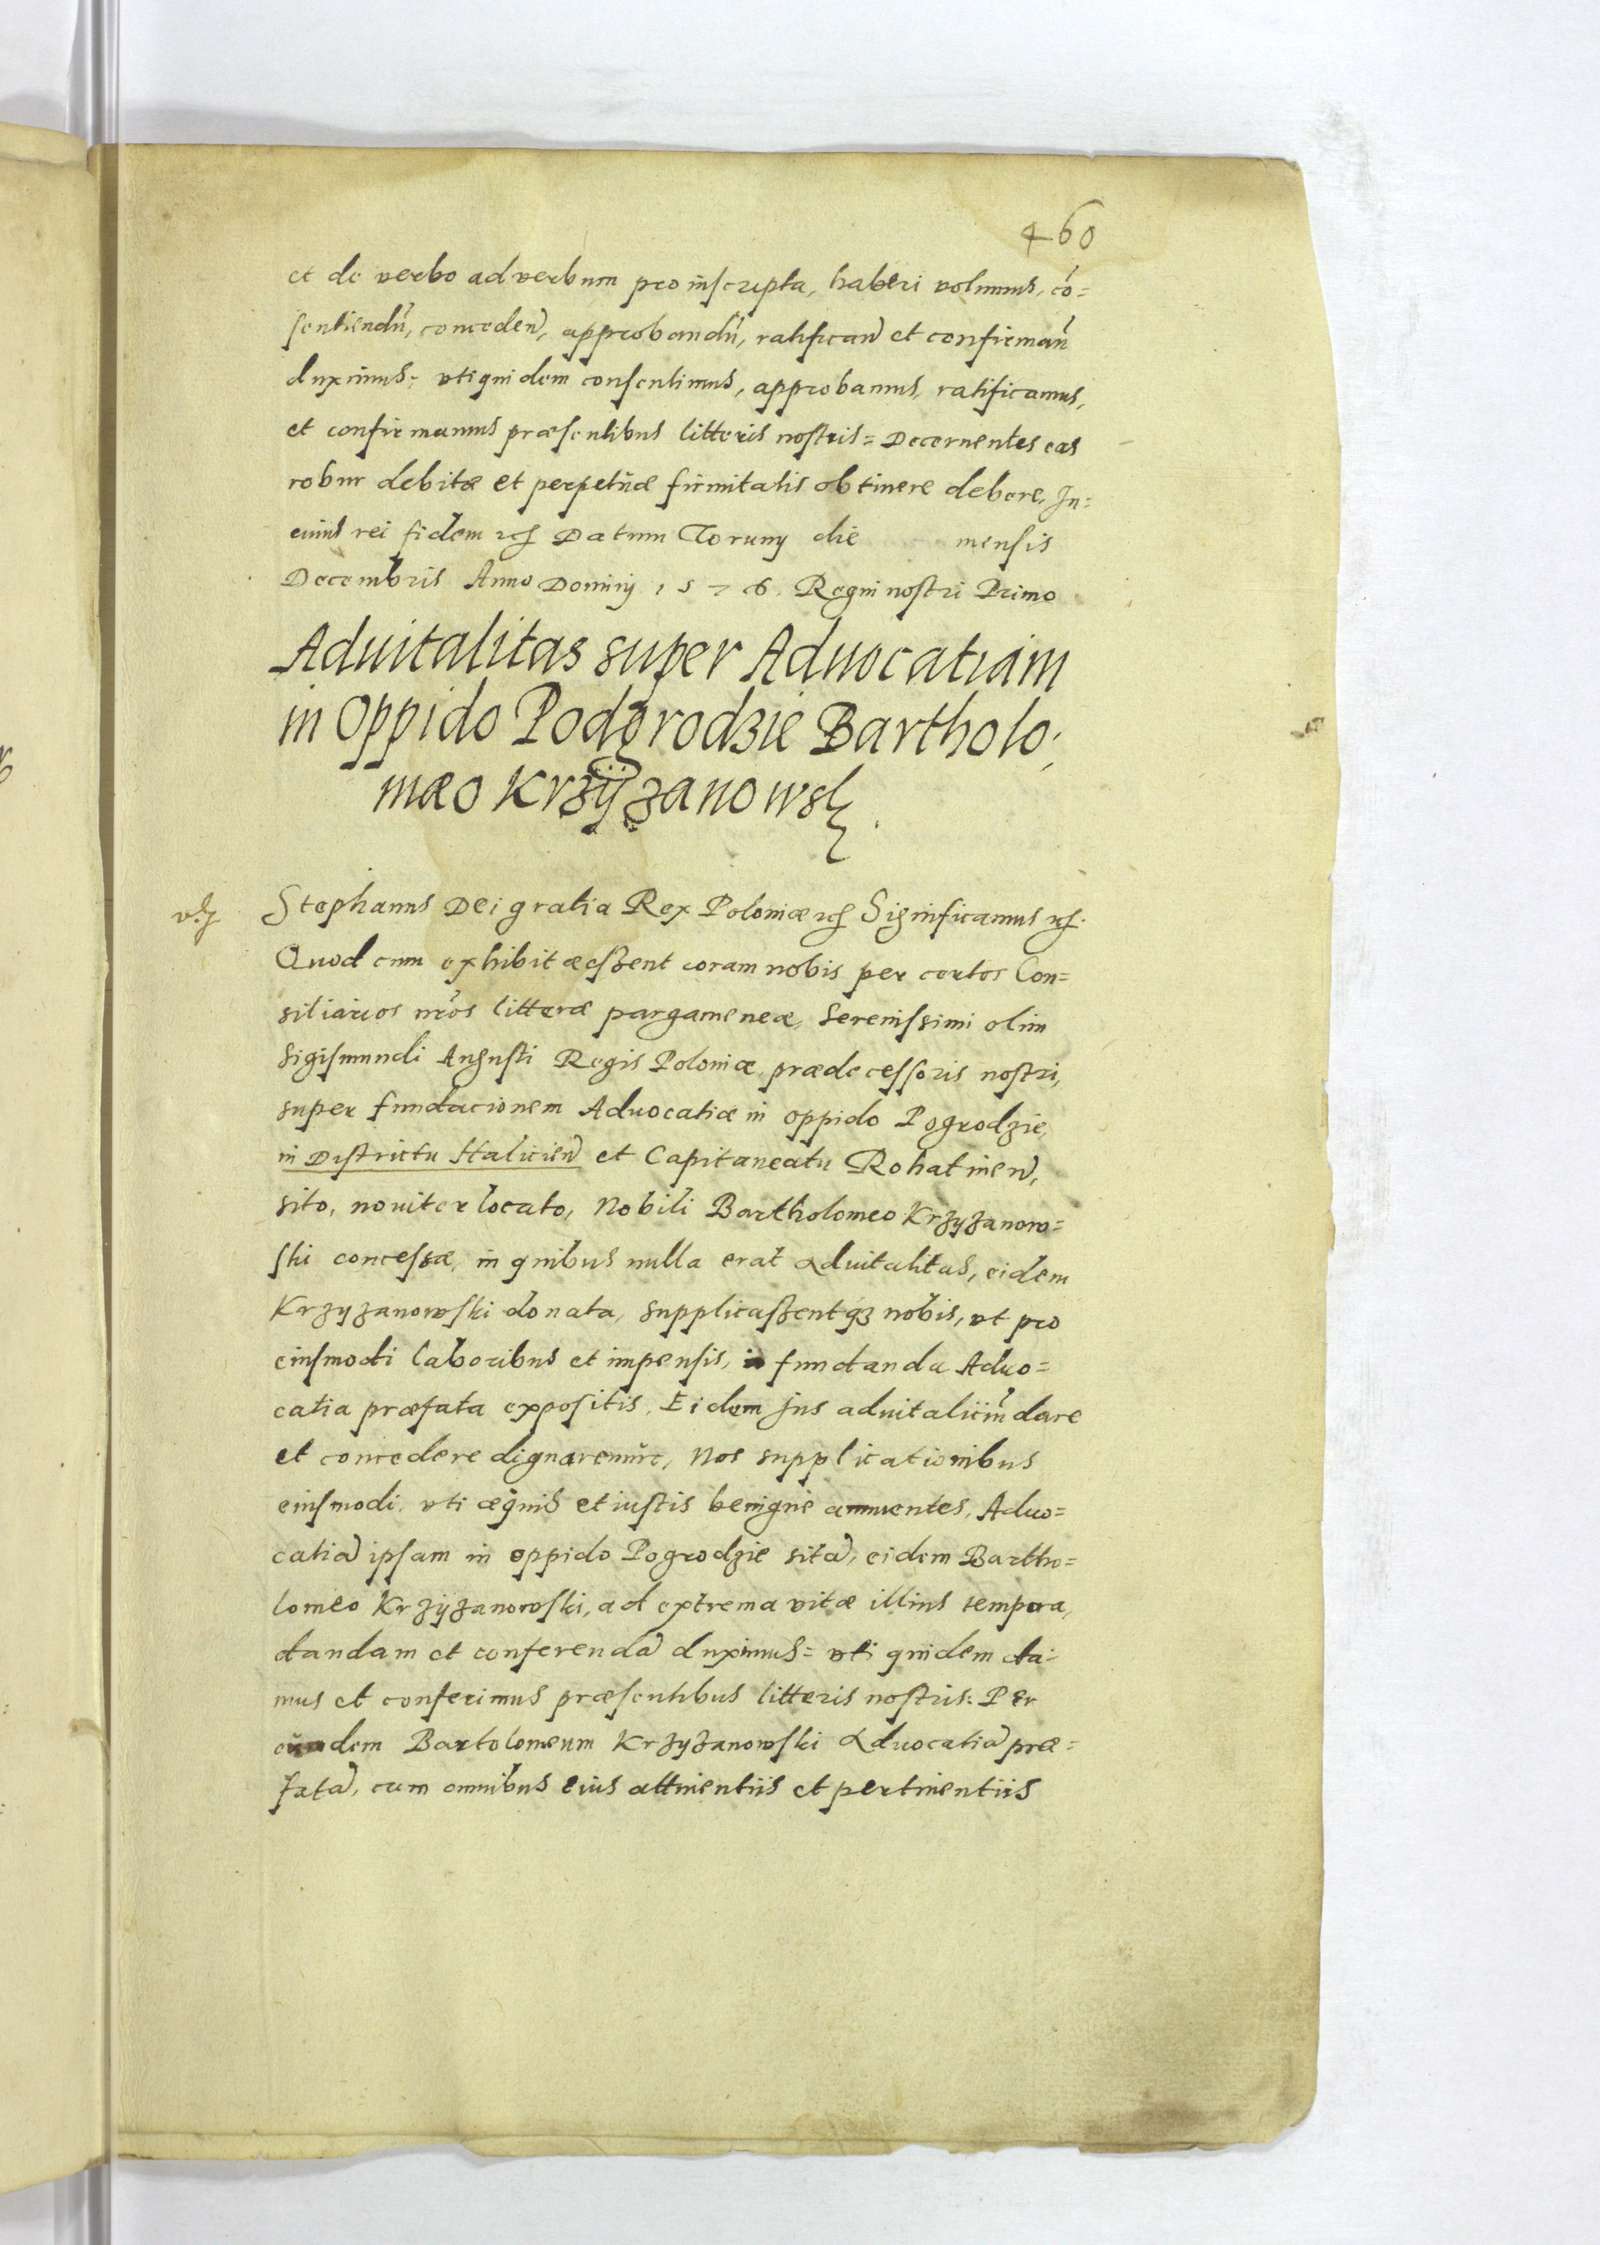 460
et de verbo ad verbum pro inscripta, haberi volumus, cō=
sentiendū, conceden̄, approbandū, ratifican̄ et confirman̄
duximus: vti quidem consentimus, approbamus, ratificamus,
et confirmamus præsentibus litteris nostris= Decernentes eas
robur debitæ et perpetuæ firmitatis obtinere debere, In=
cuius rei fidem etc Datum Toruny die mensis
Decembris Anno Dominj 1576. Regni nostri Primo
Aduitalitas super Aduocatiam
in Oppido Podgrodzie Bartholo:
mæo Krzÿzanowsk.
Stephanus Dei gratia Rex Poloniæ etc Significamus etc.
Quod cum exhibitæ essent coram nobis per certos Con=
siliarios nr̄os litteræ pargameneæ, Serenissimi olim
Sigismundi Augusti Regis Poloniæ prædecessoris nostri,
super fundacionem Aduocatiæ in oppido Pogrodzie,
in Districtu Halicien̄ et Capitaneatu Rohatinen̄,
sito, nouiter locato, Nobili Bartholomeo Krzyzanow=
ski concessæ, in quibus nulla erat aduitalitas, eidem
Krzyzanowski donata, supplicassentq3 nobis, vt pro
eiusmodi laboribus et impensis, in fundanda Aduo=
catia præfata expositis, Eidem Jus aduitaliū dare
et concedere dignaremur, Nos supplicationibus
eiusmodi, vti æquis et iustis benigne annuentes, Aduo=
catiā ipsam in oppido Pogrodzie sitā, eidem Bartho=
lomeo Krzÿzanowski, ad extrema vitæ illius tempora,
dandam et conferendā duximus= vti quidem da=
mus et conferimus præsentibus litteris nostris: Per
eundem Bartolomeum Krzyzanowski aduocatiā præ=
fatā, cum omnibus eius attinentiis et pertinentiis